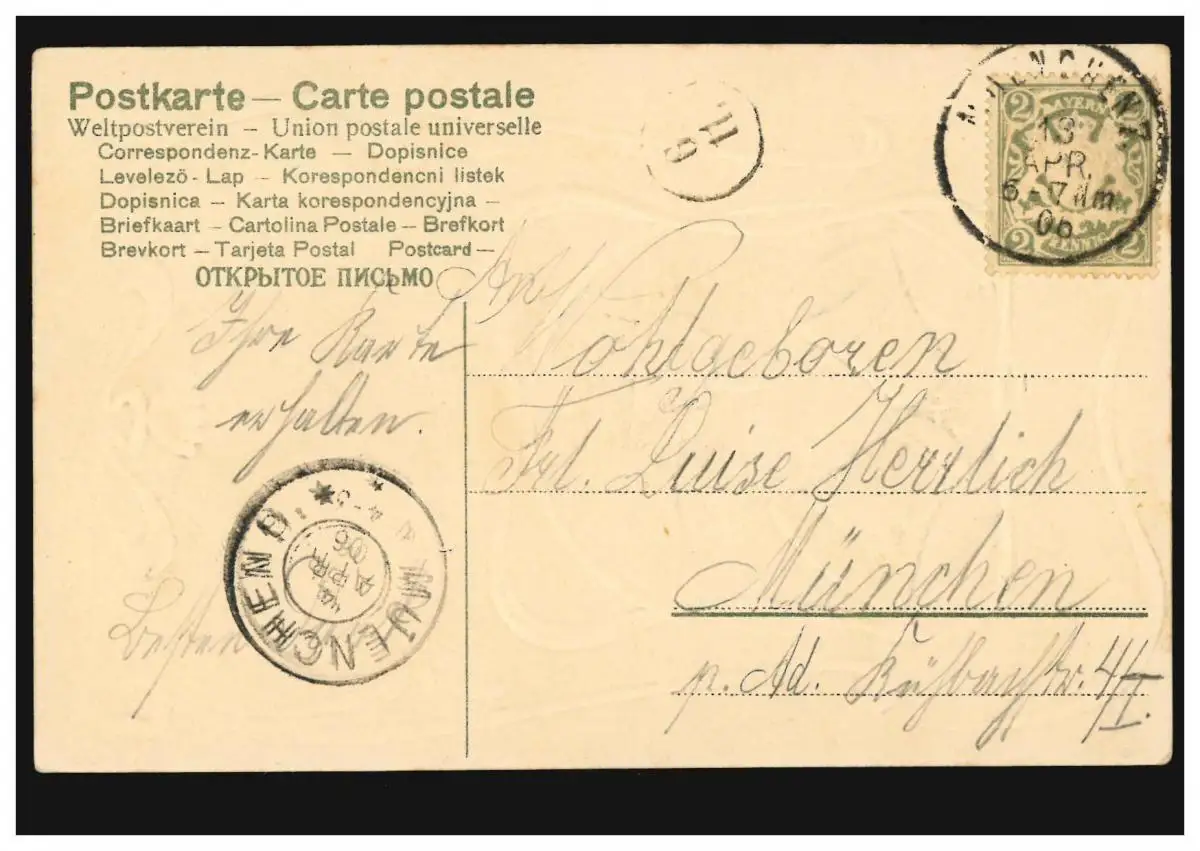 Postkarte — Carte postale
Weltpostverein — Union postale universelle
Correspondenz-Karte — Dopisnice
Levelező-Lap — Korespondencni listek
Dopisnica — Karta korespondencyjna —
Briefkaart — Cartolina Postale — Brefkort
Brevkort — Tarjeta Postal Postcard —
ОТКРЫТОЕ ПИСЬМО
11
9
MUENCHEN 7.
13
APR.
6-7 Nm
06
2 2
BAYERN
2 PFENNIG 2
Ihre Karte
erhalten.
Besten
MUENCHEN
APR
06
An
Wohlgeboren
Frl. Luise Herrlich
München
p. Ad. 4/I.